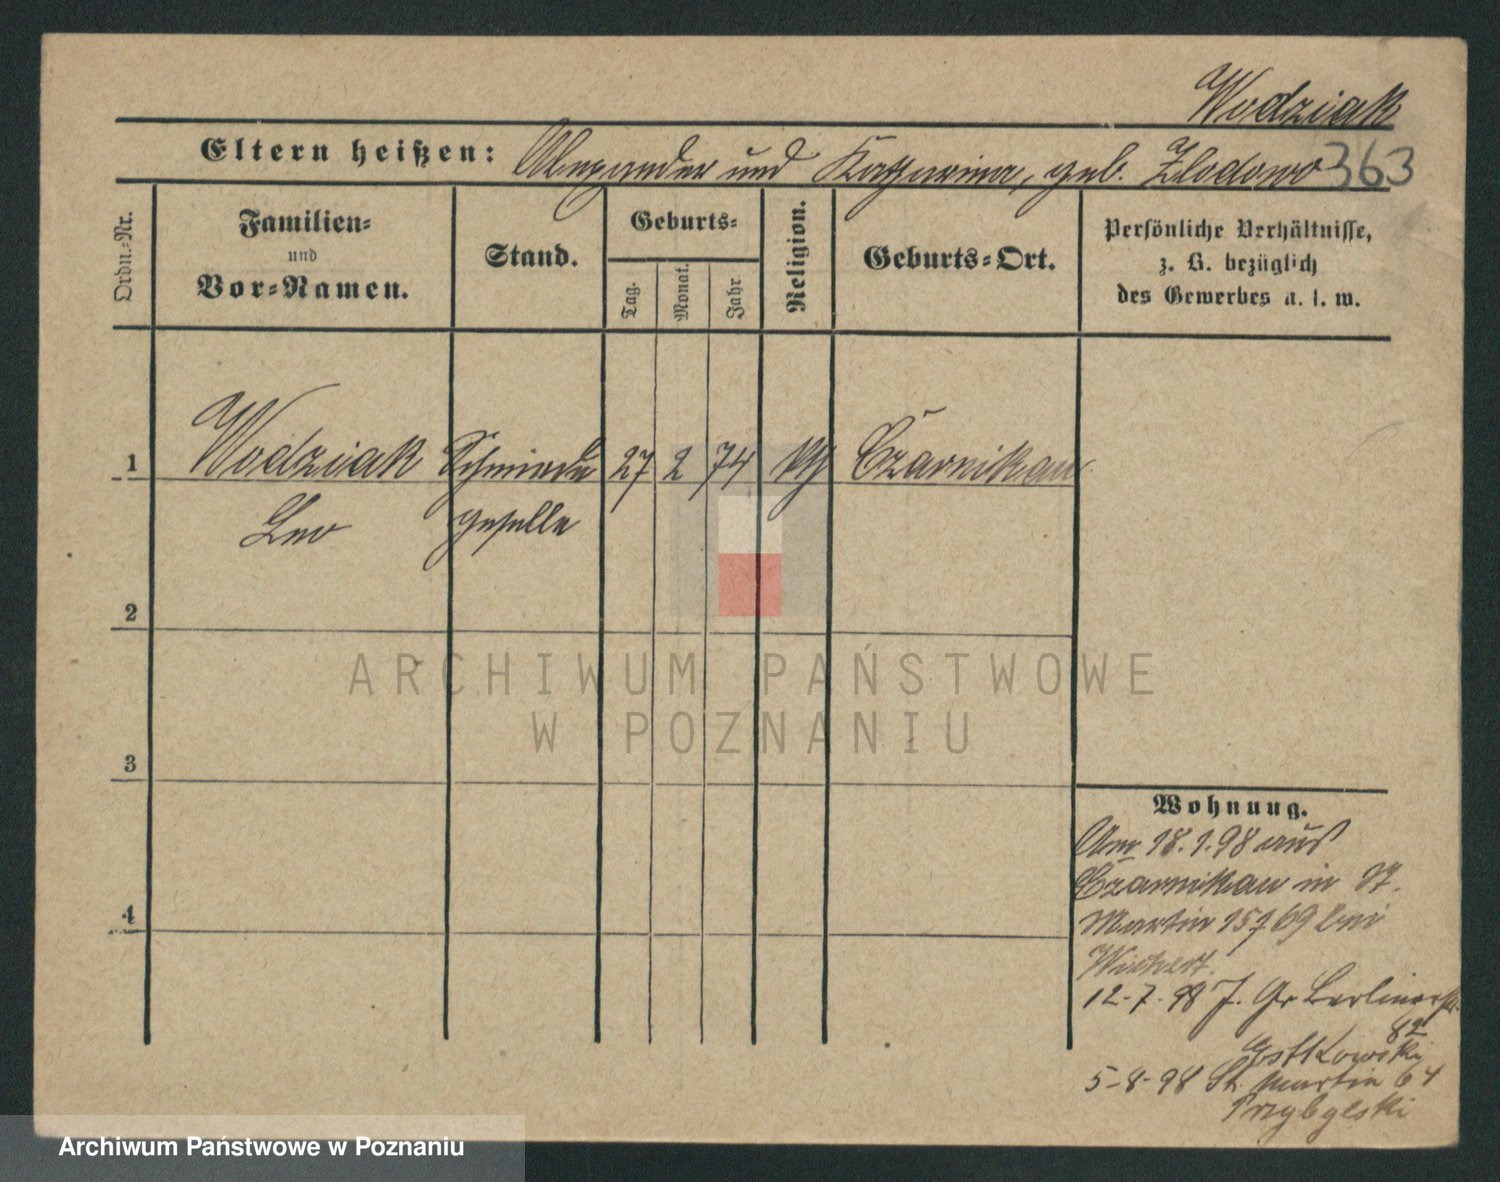 Wodziak
Eltern heißen: Alexander und Katharina, geb. Zlodowo 363
Ordn.-Nr.
Familien- und Vor-Namen.
Stand.
Geburts-
Tag.
Monat.
Jahr
Religion.
Geburts-Ort.
Persönliche Verhältnisse,
z. B. bezüglich
des Gewerbes u. s. w.
1 Wodziak Schmiede 27 2 74 kth Czarnikau
Leo geselle
2
ARCHIWUM PAŃSTWOWE
W POZNANIU
3
4
Wohnung.
Am 18.1.98 aus
Czarnikau in St.
Martin 15/69 bei
Wichert.
12-7-98 J. Gr Berlinerstr.
82
Estkowski
5-8-98 St. Martin 64
Przybylski
Archiwum Państwowe w Poznaniu